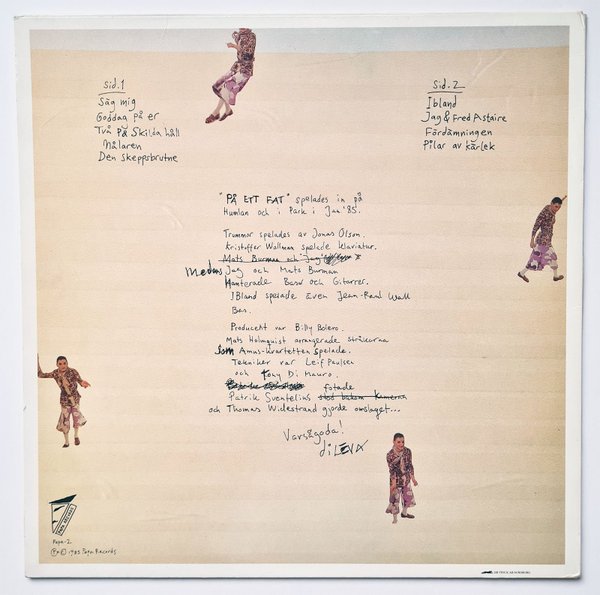 Sid.1
Säg mig
Goddag på er
Två På Skilda håll
Målaren
Den skeppsbrutne
Sid.2
Ibland
Jag & Fred Astaire
Fördämningen
Pilar av kärlek
"PÅ ETT FAT" spelades in på
Humlan och i Park i Jan '85.
Trummor spelades av Jonas Olson.
Kristoffer Wallman spelade klaviatur.
Mats Burman och Jag
medens Jag och Mats Burman
Hanterade Basar och Gitarrer.
IBland spelade Även Jean-Paul Wall
Bas.
Producent var Billy Bolero.
Mats Holmquist arrangerade stråkarna
Som Amus-kvartetten spelade.
Tekniker var Leif Paulsen
och Tony Di Mauro.
fotade
Patrik Sventelius stod bakom Kameran
och Thomas Widestrand gjorde omslaget...
Varszgoda!
diLEVA
Papa-2
Ⓟ&© 1985 Papa Records